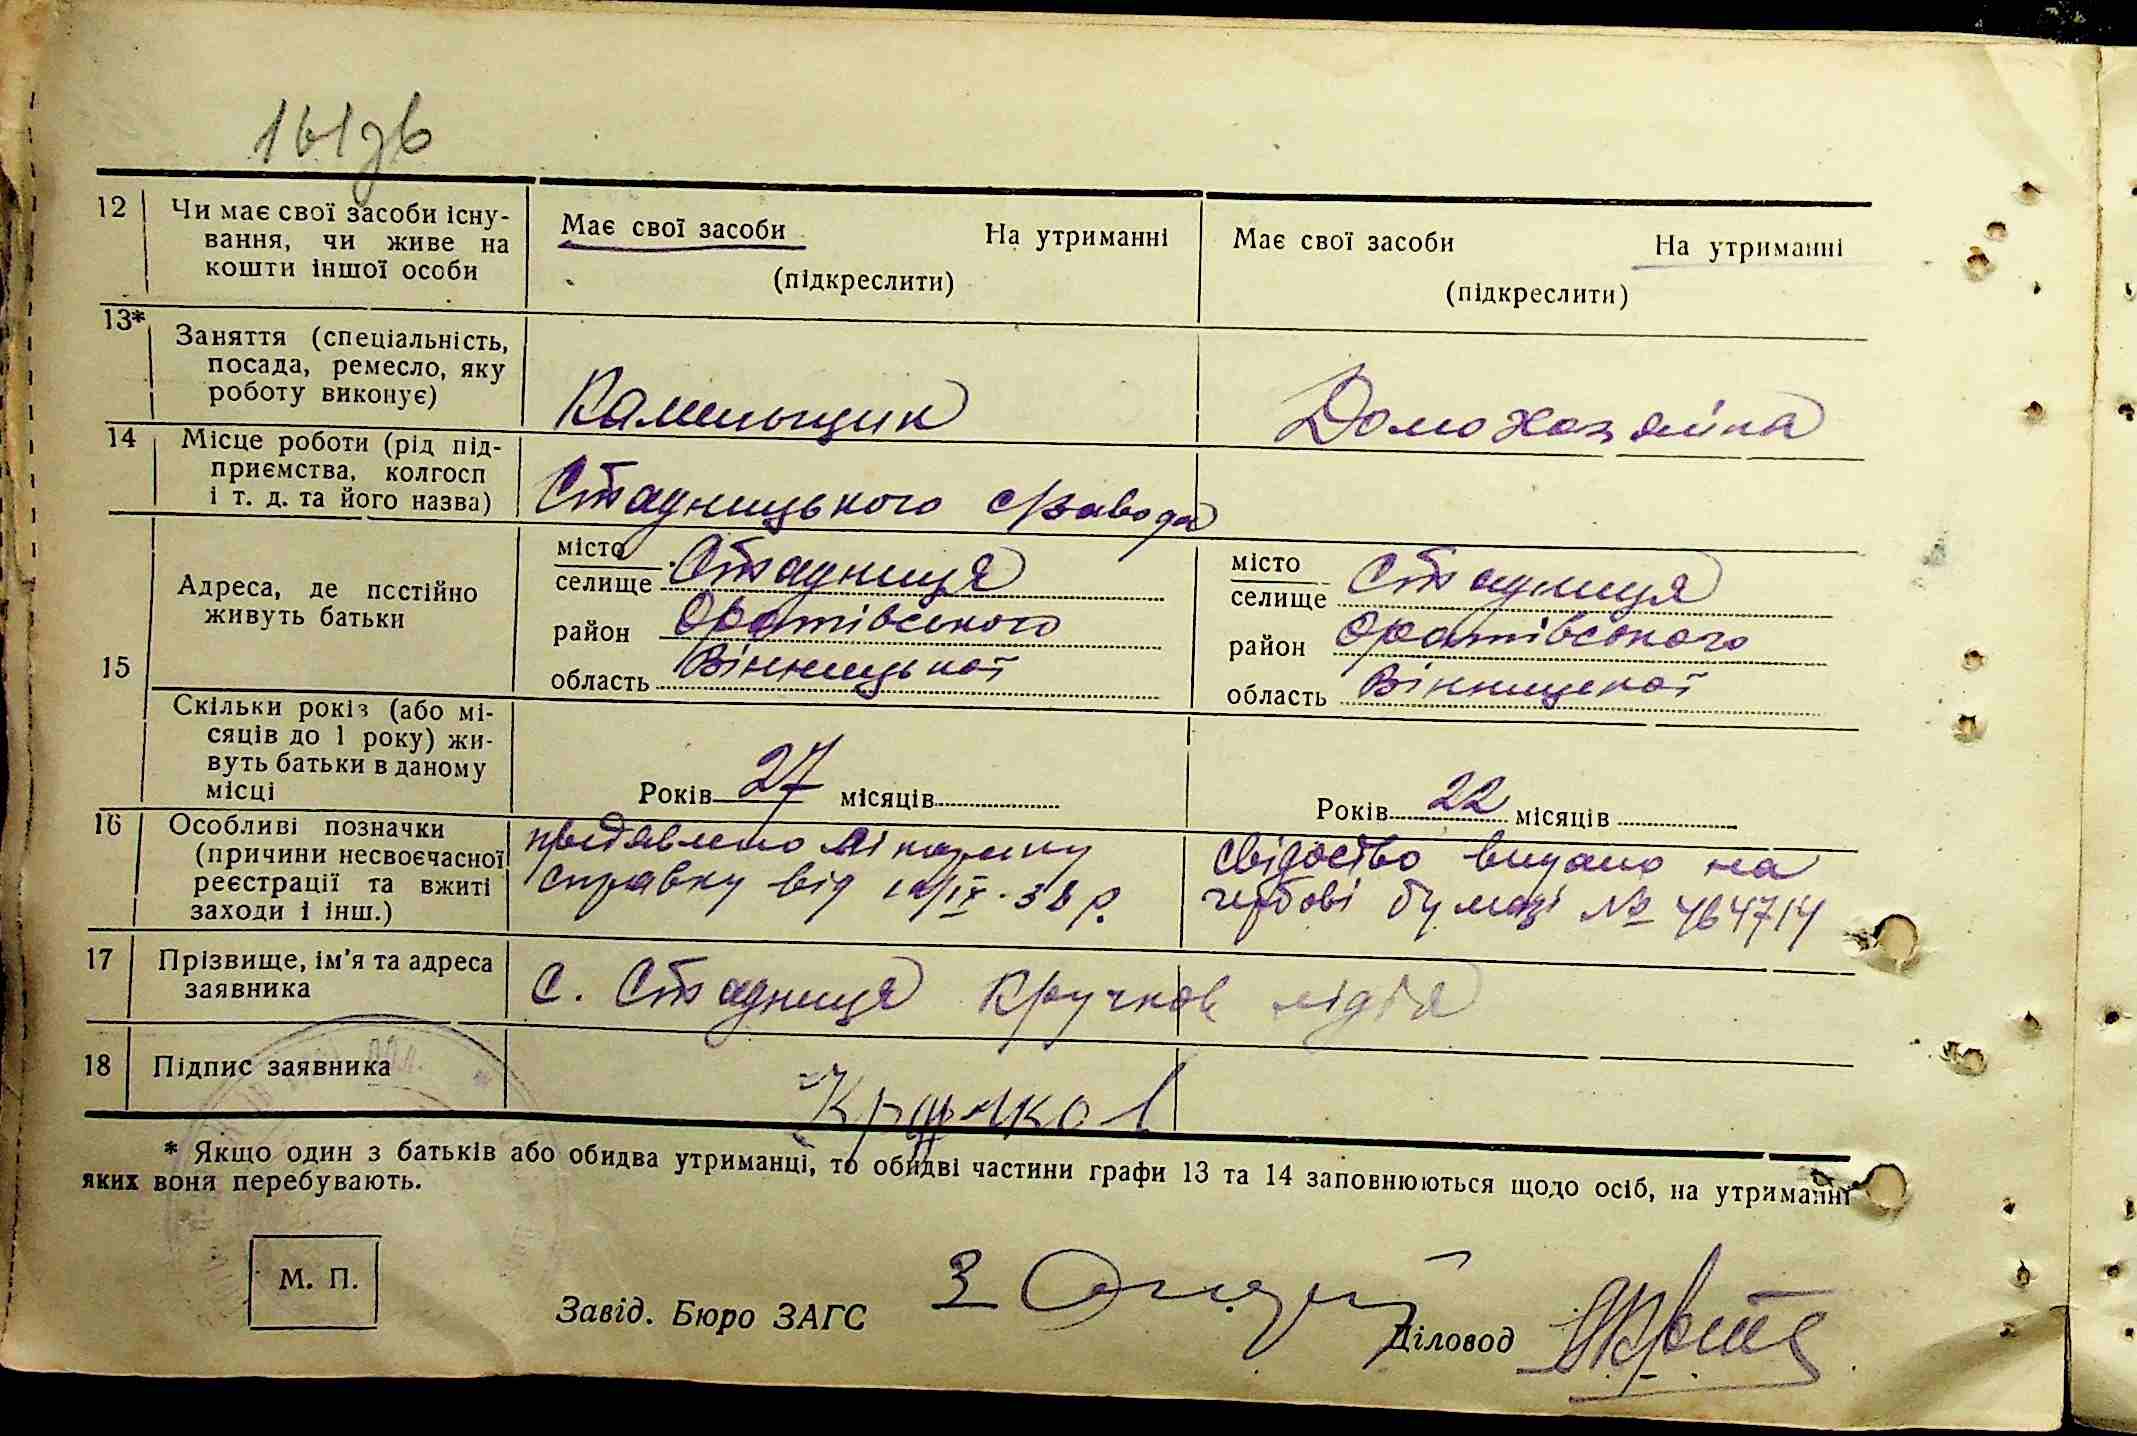 161зв
12 Чи має свої засоби існу-
вання, чи живе на
кошти іншої особи
Має свої засоби На утриманні
(підкреслити)
Має свої засоби На утриманні
(підкреслити)
13* Заняття (спеціальність,
посада, ремесло, яку
роботу виконує)
Каменьщик
Домохазяйка
14 Місце роботи (рід під-
приємства, колгосп
і т. д. та його назва)
Стадницького с/завода
15
Адреса, де постійно
живуть батьки
місто
селище Стадниця
район Оратівського
область Вінницької
місто
селище Стадниця
район Оратівського
область Вінницької
Скільки років (або мі-
сяців до 1 року) жи-
вуть батьки в даному
місці
Років 27 місяців
Років 22 місяців
16 Особливі позначки
(причини несвоєчасної
реєстрації та вжиті
заходи і інш.)
справку від 10/IX-38 р.
свідоство видано на
гербові бумазі № 464714
17 Прізвище, ім'я та адреса
заявника
с. Стадниця Кручков Лідія
18 Підпис заявника
Кручков
* Якщо один з батьків або обидва утриманці, то обидві частини графи 13 та 14 заповнюються щодо осіб, на утриманні
яких вони перебувають.
М. П.
Завід. Бюро ЗАГС
Діловод